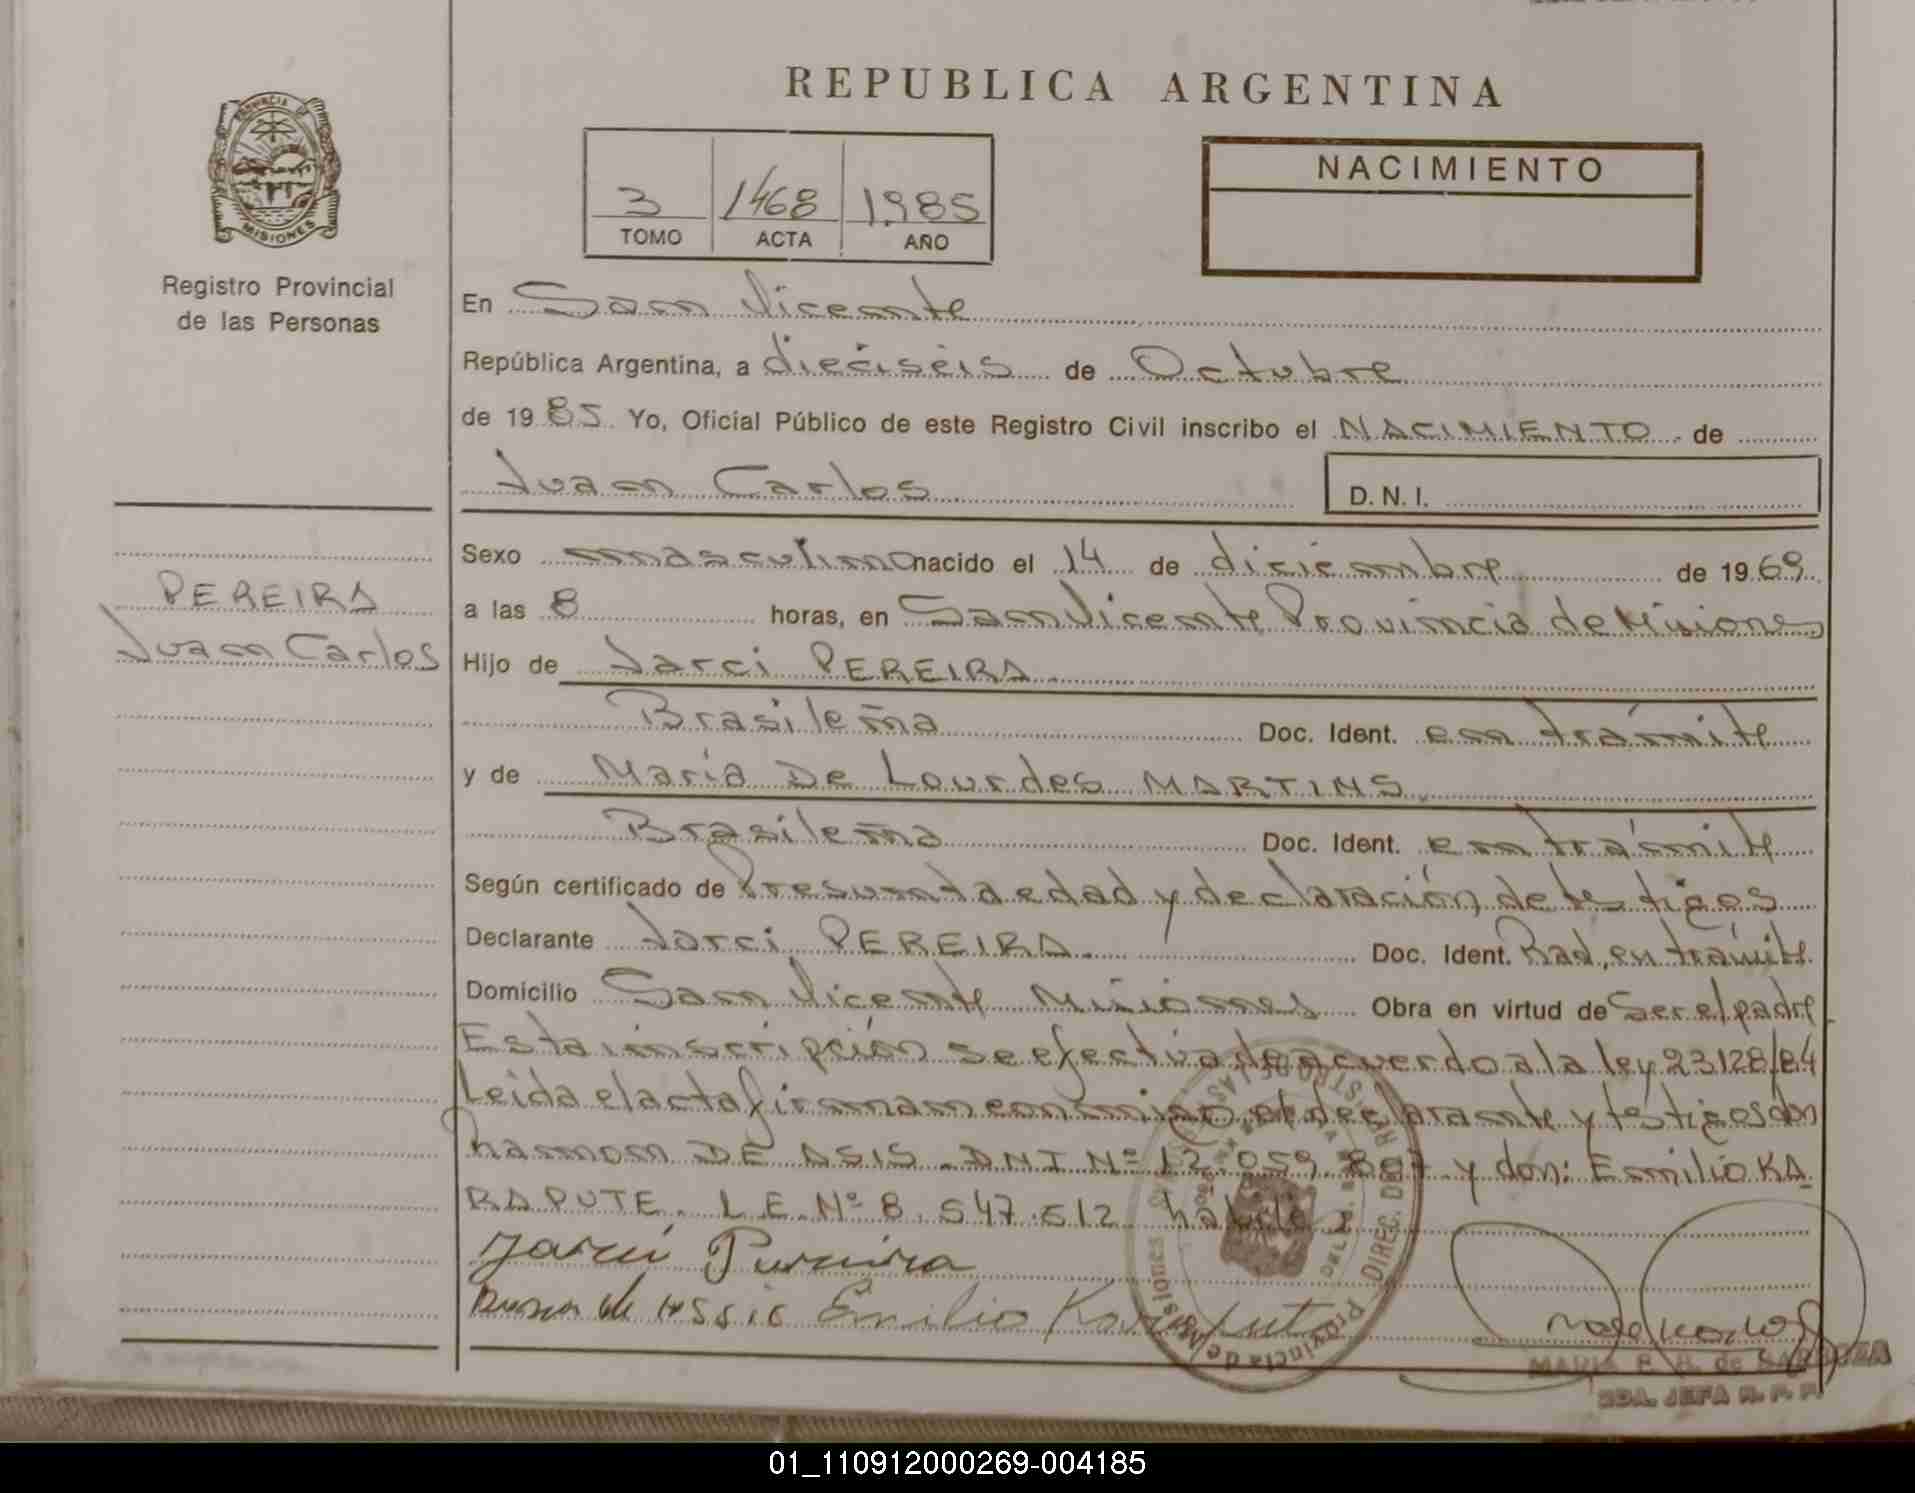 REPUBLICA ARGENTINA
PROVINCIA DE
MISIONES
Registro Provincial
de las Personas
3 1468 1985
TOMO ACTA AÑO
NACIMIENTO
En San Vicente
República Argentina, a dieciseis de Octubre
de 1985 Yo, Oficial Público de este Registro Civil inscribo el NACIMIENTO de
Juan Carlos D.N.I.
PEREIRA
Juan Carlos
Sexo masculino nacido el 14 de diciembre de 1969
a las 8 horas, en San Vicente Provincia de Misiones
Hijo de Jarci PEREIRA
Brasileña Doc. Ident. en trámite
y de María De Lourdes MARTINS
Brasileña Doc. Ident. en trámite
Según certificado de Presunta edad y declaración de testigos
Declarante Jarci PEREIRA Doc. Ident. Rad. en trámite
Domicilio San Vicente Misiones Obra en virtud de Ser el padre
Esta inscripción se efectúa de acuerdo a la ley 23128/84
Leida el acta firman conmigo, el declarante y testigos don
Ramon DE ASIS DNI Nº 12.059.887 y don: Emilio KA
RAPUTE. L.E. Nº 8.547.512
Jarci Pereira
Emilio
Provincia de Misiones
MARIA E. B. de
2DA. JEFA R. P. P.
01_110912000269-004185